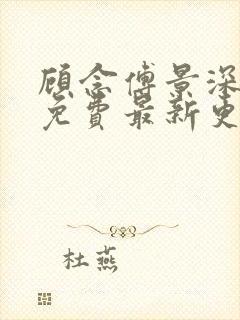 顾念傅景深
免费最新更
杜燕